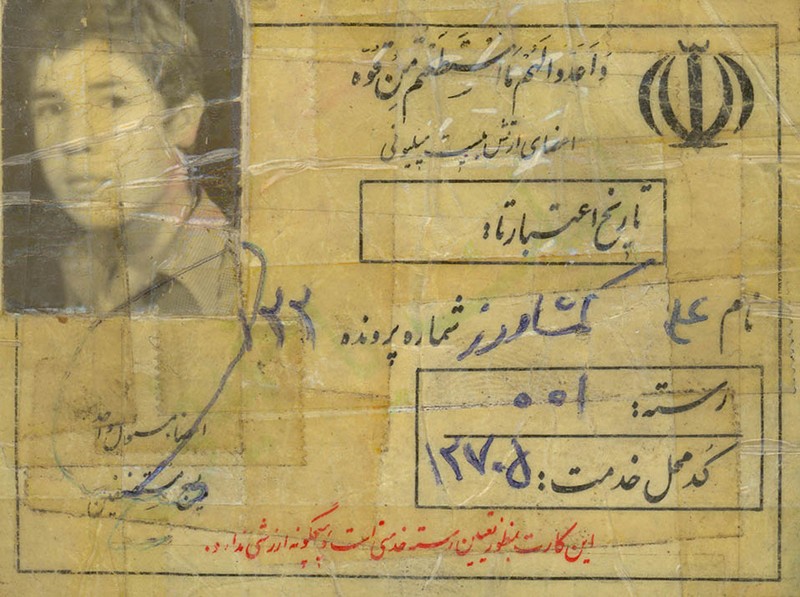 وَاَعِدّوا لَهُم مَااسْتَطَعْتُم مِنْ قُوَّه
اعضای ارتش بیست میلیونی
تاریخ اعتبار تا:
نام علی کشاورز شماره پرونده ۱۳۳
رسته: ۰۰۱
کد محل خدمت: ۱۲۷۰۵
امضا مسئول واحد
بسیج مستضعفین
این کارت بمنظور تعیین رسته خدمتی است و هیچگونه ارزشی ندارد.